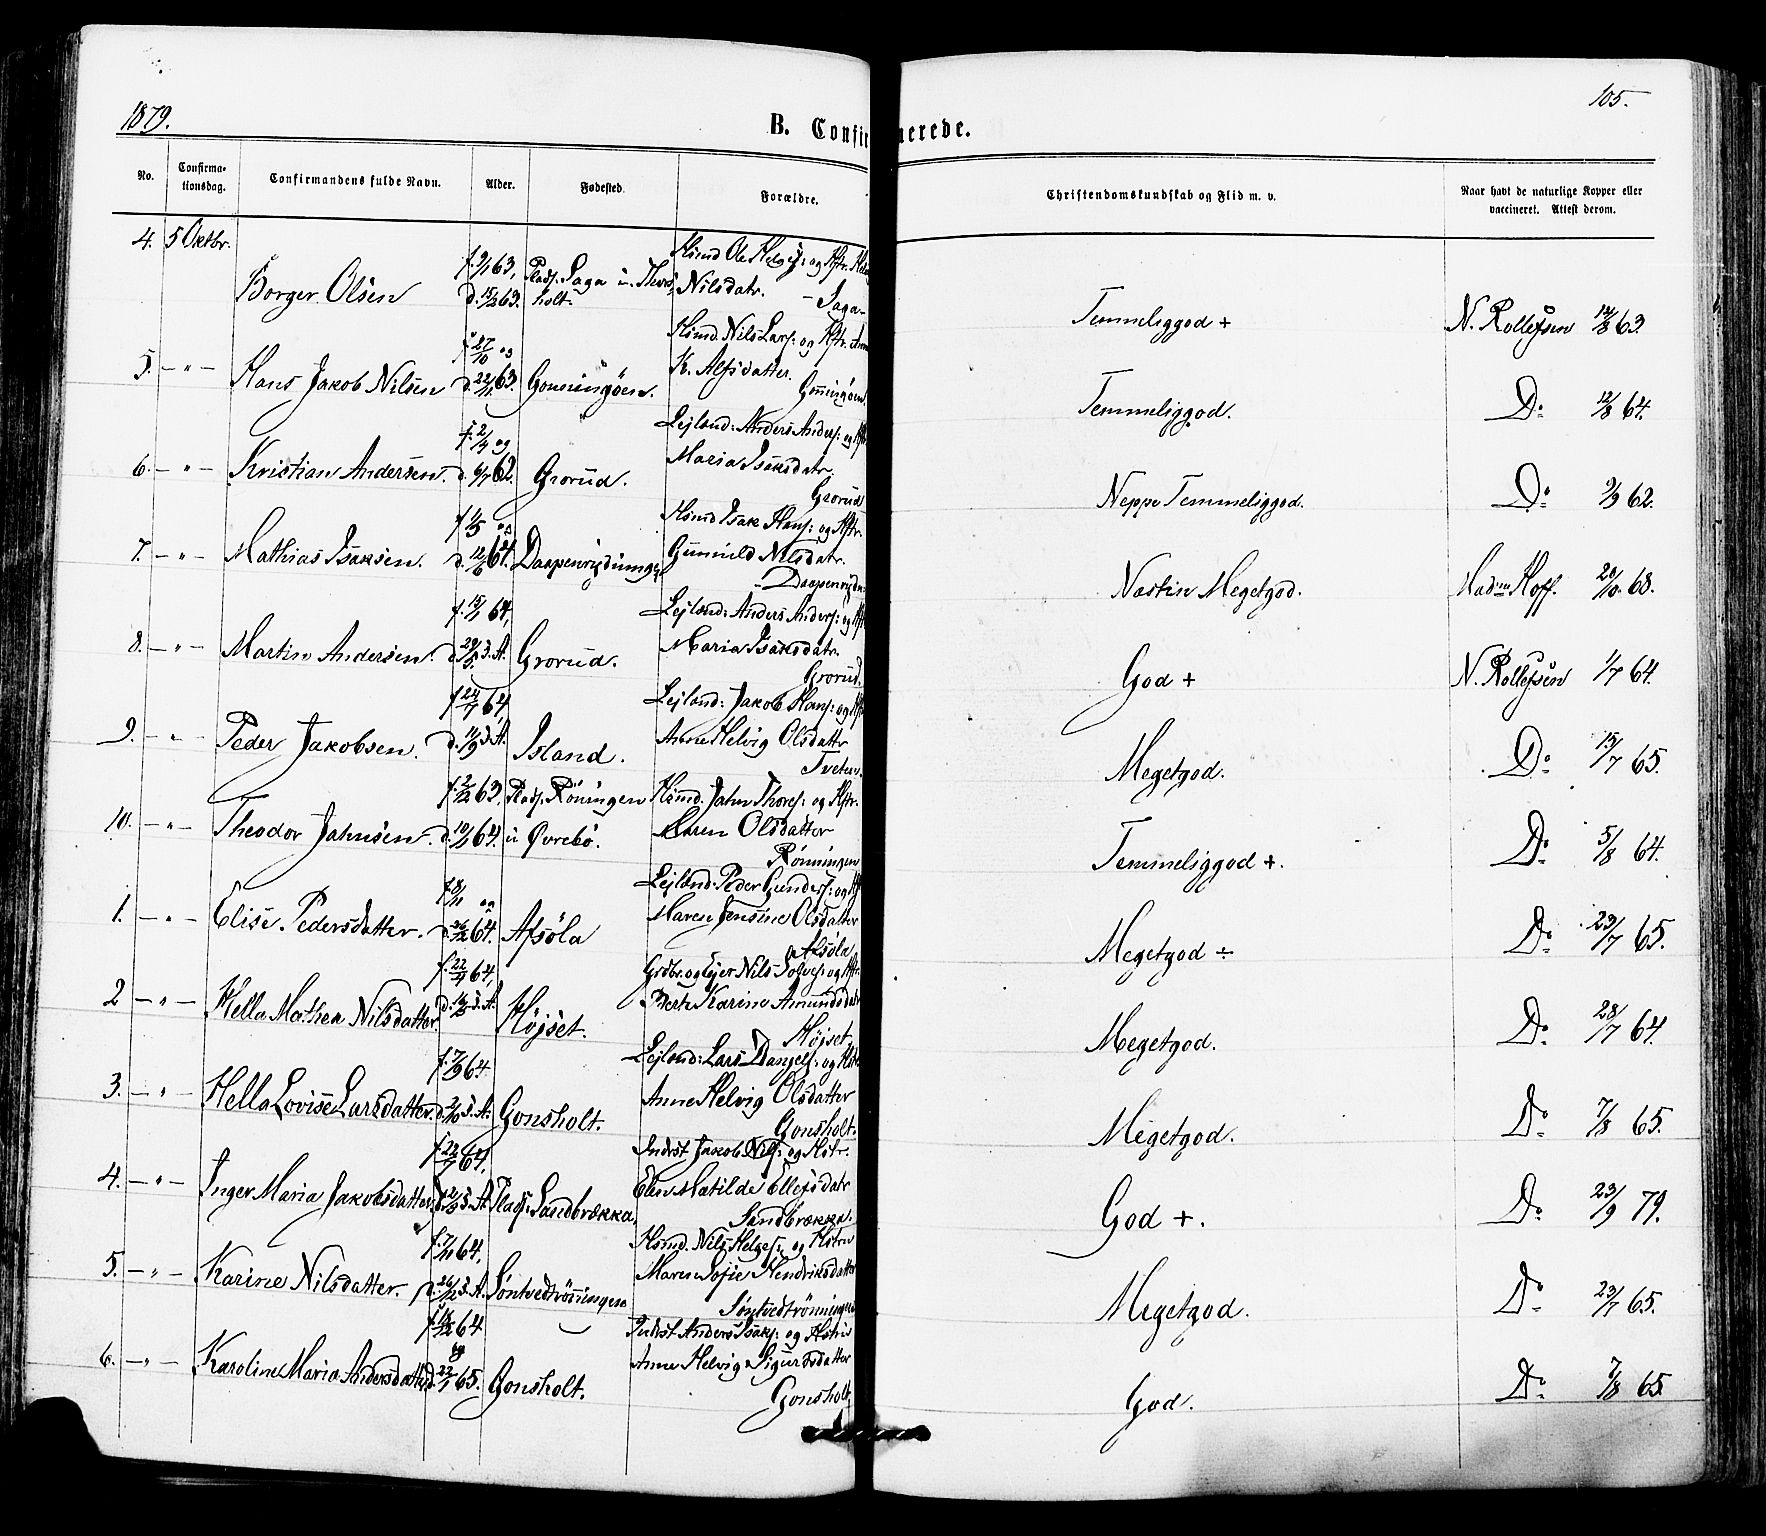 1879.
105.
B. Confirmerede.
No.
Confirma-
tionsdag.
Confirmandens fulde Navn.
Alder.
Fødested.
Forældre.
Christendomskundskab og Flid m. v.
Naar havt de naturlige Kopper eller
vaccineret. Attest derom.
4. 5 Oktbr.
Borger Olsen
f. 9/1 63,
d. 15/2 63.
Plads. Saga u. Thors-
holt.
Hsmd Ole Helges: og Hstr.
Nilsdatr.
- Saga -
Temmeliggod +
N. Rollefsen 14/8 63.
5. - " - Hans Jakob Nilsen
f. 27/10 og
d. 22/11 63.
Gonningöen.
Hsmd. Nils Lars: og Hstr.
K. Alfsdatter.
Gonningöen.
Temmeliggod.
Do 12/8 64.
6. - " - Kristian Andersen.
f. 2/4 og
d. 6/7 62.
Grorud.
Lejlend: Anders Anders: og
Maria Isaksdatr.
Grorud
Neppe Temmeliggod.
Do 9/9 62.
7. - " - Mathias Isaksen.
f. 1/5 og
d. 12/6 64.
Hsmd Isak Hans: og Hstr.
Gunnild Nilsdatr.
Næsten Megetgod.
Mad. Hoff. 20/10 68.
8. - " - Martin Andersen.
f. 15/1 64,
d. 29/5 s. A.
Grorud.
Lejlend: Anders Anders: og
Maria Isaksdatr.
Grorud.
God +
N. Rollefsen 1/7 64.
9. - " - Peder Jakobsen.
f. 24/7 64,
d. 11/9 s. A.
Island.
Lejlend: Jakob Hans: og
Anne Helvig Olsdattr
Tveten.
Megetgod.
Do 15/7 65.
10. - " - Theodor Jahnsen.
f. 2/12 63,
d. 10/1 64.
Plads. Röningen
u Övrebö.
Hsmd. Jahn Thores: og Hstr.
Maren Olsdatter
Rönningen
Temmeliggod +.
Do 5/8 64.
1. - " - Elise Pedersdatter.
f. 8/11 og
d. 26/12 64.
Afsöla
Lejlend: Peder Gunders: og
Maren Jensine Olsdatter
Afsöla
Megetgod ÷
Do 23/7 65.
2 - " - Hella Mathea Nilsdatter
f. 22/4 64,
d. 16/5 s. A.
Höjset.
Grdbr. og Ejer Nils Solves: og Hstr.
Berte Karine Amundsdatr
Höjset.
Megetgod.
Do 28/7 64.
3. - " - Hella Lovise Larsdatter.
f. 7/9 64.
d. 2/10 s. A.
Gonsholt.
Lejlend: Lars Danjels: og
Anne Helvig Olsdatter
Gonsholt.
Megetgod.
Do 7/8 65.
4. - " - Inger Maria Jakobsdatter
f. 22/7 64,
s. A.
Plads: Sandbrækka,
Inderst Jakob Nils: og Hstr.
Elen Matilde Ellefsdatr
Sandbrækka.
God +.
Do 23/9 79.
5. - " - Karine Nilsdatter.
f. 7/11 64,
d. 26/12 s. A.
Söntvedtrönningen
Hsmd. Nils Helges: og Hstru
Maren Sofie Hendriksdatter
Söntvedtrönningen
Megetgod.
Do 23/7 65.
6. - " - Karoline Maria Andersdatter
64
og
d. 22/1 65.
Gonsholt.
Inderst Anders Isaks: og Hstru
Anne Helvig Sigurdsdatter
Gonsholt
God.
Do 7/8 65.